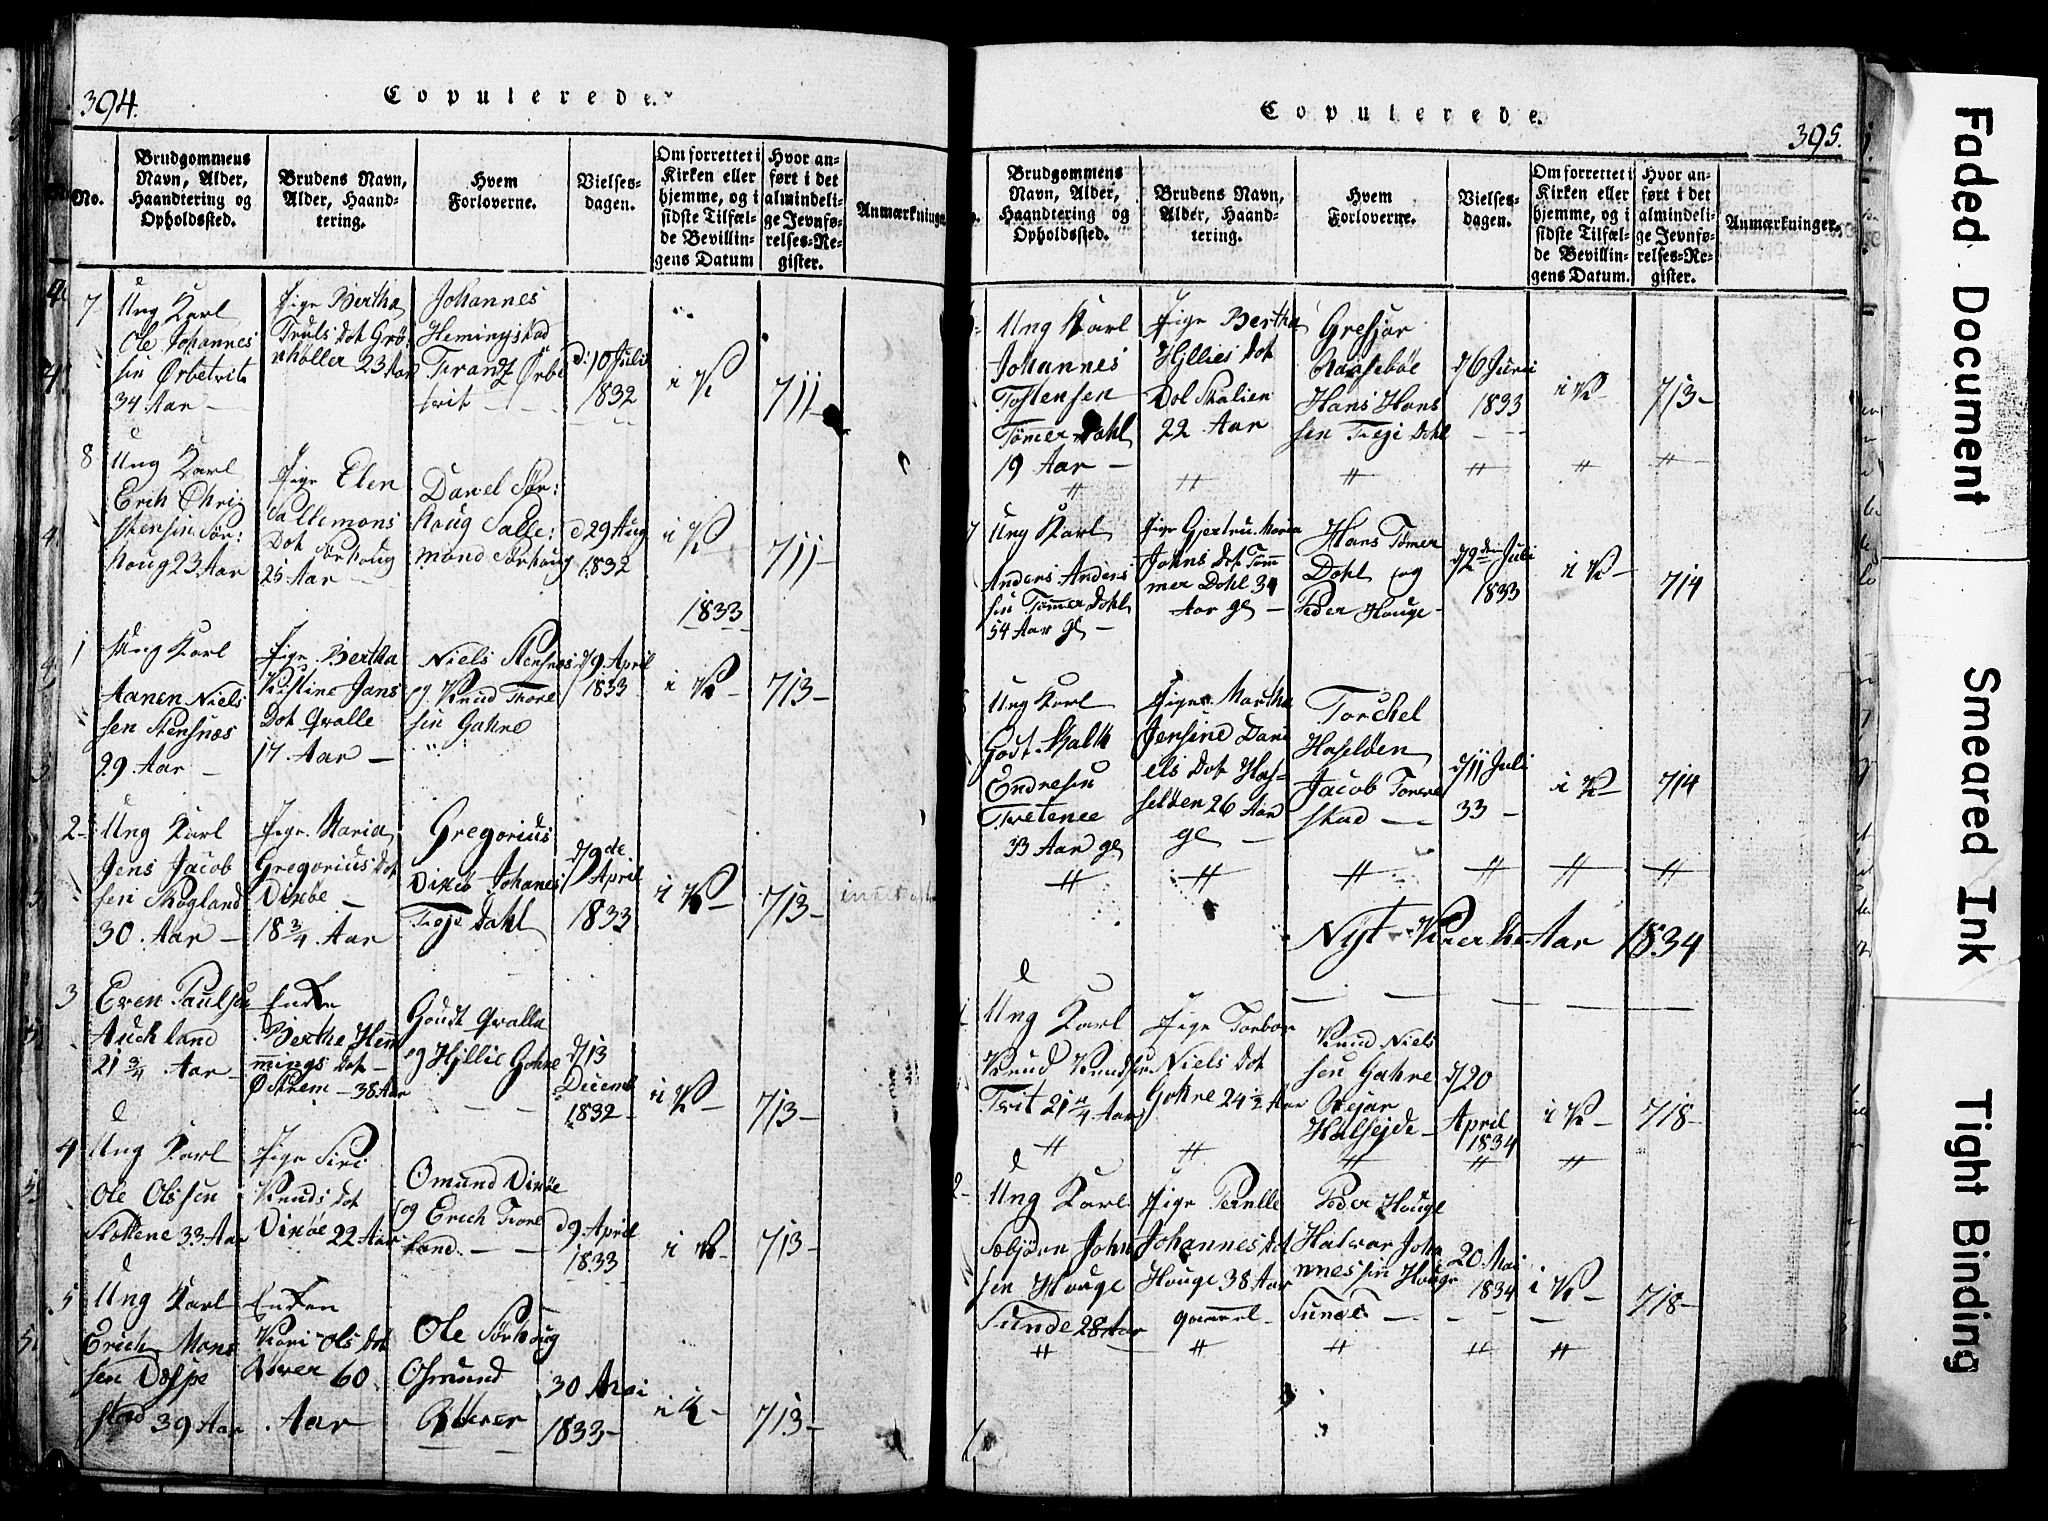 394.
Copulerede.
No.
Brudgommens
Navn, Alder,
Haandtering og
Opholdssted.
Brudens Navn,
Alder, Haand-
tering.
Hvem
Forloverne.
Vielses-
dagen.
Om forrettet i
Kirken eller
hjemme, og i
sidste Tilfæl-
de Bevillin-
gens Datum
Hvor an-
ført i det
almindeli-
ge Jevnfø-
relses-Re-
gister.
Anmærkninger
7
Ung Karl
Ole Johannes
sen Ørbetvit
34 Aar —
Pige Bertha
Truls Dot Grø-
nholler 23 Aar
Johannes
Hemingstad
Frantz Ørbe
tvit —
d: 10 Julii
1832
i K
711
8
Ung Karl
Erich Chri
stensen Sør:
houg 23 Aar
Pige Elen
Sallemons
Dot Sørhoug
25 Aar
Daniel Sør:
houg Salle:
mond Sørhoug
d 29 Aug
1832
i K
711
1833
1
Ung Karl
Aanen Niels
sen Stensnæs
29 Aar —
Pige Bertha
Kistine Jans
Dot Qvalle
17 Aar —
Niels Stensnæs
og Knud Thore
sen Gahre
d/9 April
1833
i K —
713 —
2
Ung Karl
Jens Jacob
sen Skogland
30 Aar —
Pige Maria
Gregorius Dot
Dixøe —
18 3/4 Aar
Gregorius
Dixøe Johanes
Treje Dahl
d/9de
April
1833
i K —
713 —
3
Even Paulsen
Auckland
21 3/4 Aar —
Enken
Berthe Hem
mings Dot —
Østrem — 38 Aar
Goudt Qvalle
og Hjllie Gahre
d/13
Decemb
1832 —
i K —
713 —
4
Ung Karl
Ole Olssen
Slættene 33 Aar
Pige Siri
Knuds Dot
Dixøe 22 Aar
Omund Dixøe
og Erich Thore
land —
d 9 April
1833
i K —
713 —
5
Ung Karl
Erich Mons
sen Døspe
stad 39 Aar
Enken
Kari Ols Dot
60
Aar
Ole Sørhoug
Osmund
30 Mai
1833 —
i K —
713 —
395.
Copulerede.
Brudgommens
Navn, Alder,
Haandtering og
Opholdssted.
Brudens Navn,
Alder, Haand-
tering.
Hvem
Forloverne.
Vielses-
dagen.
Om forrettet i
Kirken eller
hjemme, og i
sidste Tilfæl-
de Bevillin-
gens Datum.
Hvor an-
ført i det
almindeli-
ge Jevnfø-
relses-Re-
gister.
Anmærkninger.
Ung Karl
Johannes
Tostensen
Tømer Dahl
19 Aar —
Pige Bertha
Hjllies Dot
Dol Skalien
22 Aar
Gresjar
Hans Hans
sen Treje Dahl
d/6 Juni
1833
i K —
713 —
Ung Karl
Anders Anders
sen Tømer Dahl
54 Aar gl —
Pige Gjertru Maria
Johns Dot Tøm
mer Dohl 34
Aar gl —
Hans Tømer
Dohl og
Peder Houge —
d/2den Juli
1833
i K —
714
Ung Karl
Godt Skalk
Endresen
Tvetenee
33 Aar gl
Pige Martha
Jensine Dani
els Dot Has-
selden 26 Aar
gl —
Torchel
Haselden
Jacob Torere
stad —
d/11 Juli
33 —
i K —
714
Nyt Kirerke Aar 1834
1
Ung Karl
Knud Knudsen
Tvit 21 1/4 Aar
Pige Torbor
Niels Dot
Gahre 24 1/2 Aar
Knud Niels
sen Gahre
Rejar
Halsejde —
d/20
April
1834
i K —
718 —
2
Ung Karl
Sæbjørn John
sen Houge
Sunde 28 Aar
Pige Pernelle
Johannes Dot
Houge 38 Aar
gammel —
Peder Houge
Halvar Joha
nnessen Houge
Sunde —
20 Mai
1834
i K —
718 —
Faded Document
Smeared Ink
Tight Binding